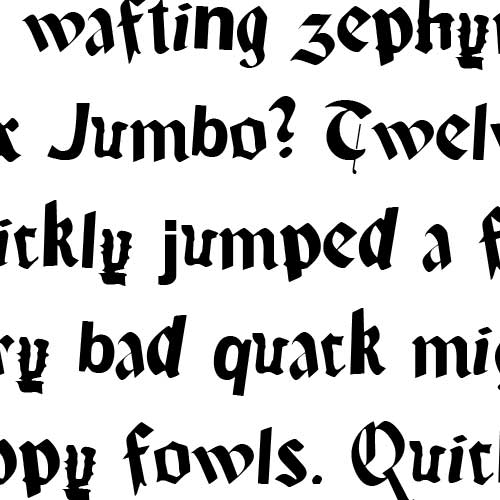 wafting zephy
x Jumbo? Twel
ickly jumped a f
ry bad quack mi
ppy fowls. Quic